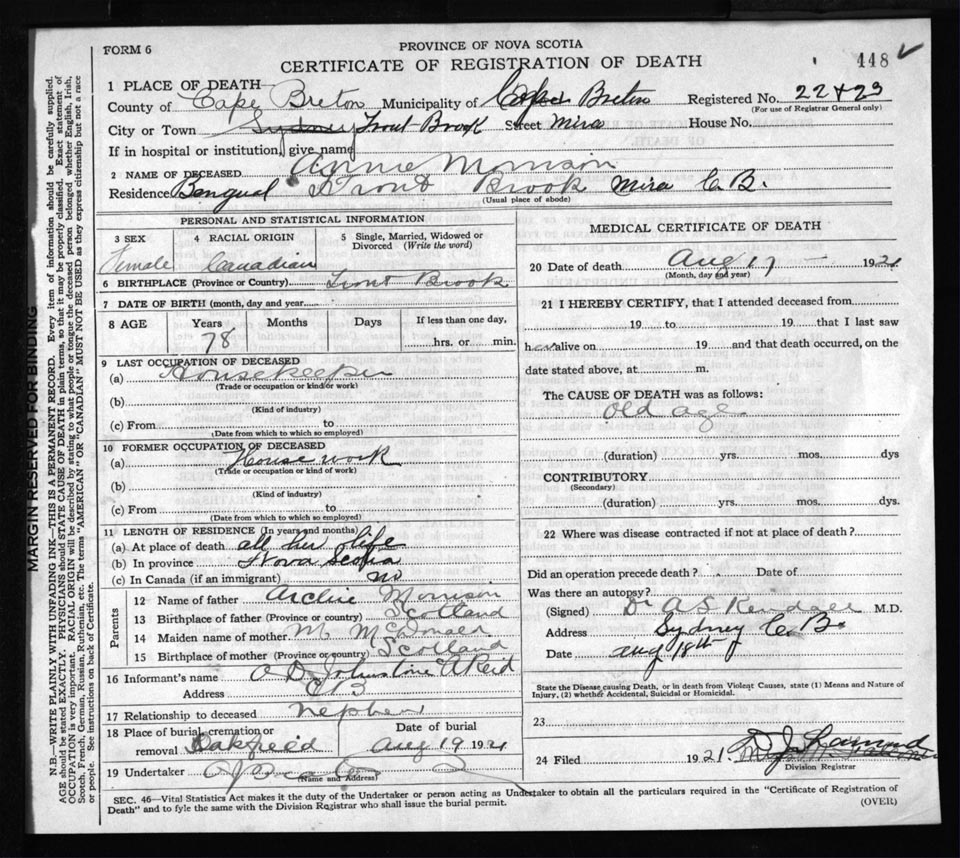 FORM 6
PROVINCE OF NOVA SCOTIA
CERTIFICATE OF REGISTRATION OF DEATH
448
1 PLACE OF DEATH
County of Cape Breton Municipality of Cape Breton Registered No. 22 + 23
(For use of Registrar General only)
City or Town Sydney Trout Brook Street Mira House No.
If in hospital or institution, give name
2 NAME OF DECEASED Annie Morrison
Residence Trout Brook Mira C.B.
(Usual place of abode)
PERSONAL AND STATISTICAL INFORMATION
3 SEX 4 RACIAL ORIGIN 5 Single, Married, Widowed or Divorced (Write the word)
Female Canadian
6 BIRTHPLACE (Province or Country) Trout Brook
7 DATE OF BIRTH (month, day and year
8 AGE Years Months Days If less than one day,
78 hrs. or min.
9 LAST OCCUPATION OF DECEASED
(a) Housekeeper
(Trade or occupation or kind or work)
(b)
(Kind of industry)
(c) From to
(Date from which to which so employed)
10 FORMER OCCUPATION OF DECEASED
(a) House work
(Trade or occupation or kind of work)
(b)
(Kind of industry)
(c) From to
(Date from which to which so employed)
11 LENGTH OF RESIDENCE (In years and months)
(a) At place of death all her life
(b) In province Nova Scotia
(c) In Canada (if an immigrant) no
Parents
12 Name of father Archie Morrison
13 Birthplace of father (Province or country) Scotland
14 Maiden name of mother M McDonald
15 Birthplace of mother (Province or country) Scotland
16 Informant's name
Address C B
17 Relationship to deceased nephew
18 Place of burial, cremation or removal Oakfield
Date of burial Aug 19 1921
19 Undertaker
(Name and Address)
MEDICAL CERTIFICATE OF DEATH
20 Date of death Aug 17 1921
(Month, day and year)
21 I HEREBY CERTIFY, that I attended deceased from
19 to 19 that I last saw
h alive on 19 and that death occurred, on the
date stated above, at m.
The CAUSE OF DEATH was as follows:
old age
(duration) yrs. mos. dys
CONTRIBUTORY
(Secondary)
(duration) yrs. mos. dys.
22 Where was disease contracted if not at place of death?
Did an operation precede death? Date of
Was there an autopsy?
(Signed) Dr A S Kendall M.D.
Address Sydney C.B.
Date Aug 18th
State the Disease causing Death, or in death from Violent Causes, state (1) Means and Nature of
Injury, (2) whether Accidental, Suicidal or Homicidal.
23
24 Filed 1921
Division Registrar
SEC. 46—Vital Statistics Act makes it the duty of the Undertaker or person acting as Undertaker to obtain all the particulars required in the "Certificate of Registration of
Death" and to fyle the same with the Division Registrar who shall issue the burial permit.
(OVER)
MARGIN RESERVED FOR BINDING
N.B.—WRITE PLAINLY WITH UNFADING INK—THIS IS A PERMANENT RECORD. Every item of information should be carefully supplied.
AGE should be stated EXACTLY. PHYSICIANS should STATE CAUSE OF DEATH in plain terms, so that it may be properly classified. Exact statement of
OCCUPATION is very important. RACIAL ORIGIN will be described by stating to what people or tongue the deceased person belonged whether English, Irish,
Scotch, French, German, Russian, Ruthenian, etc. The terms "AMERICAN" OR "CANADIAN" MUST NOT BE USED as they express citizenship but not a race
or people. See instructions on back of Certificate.